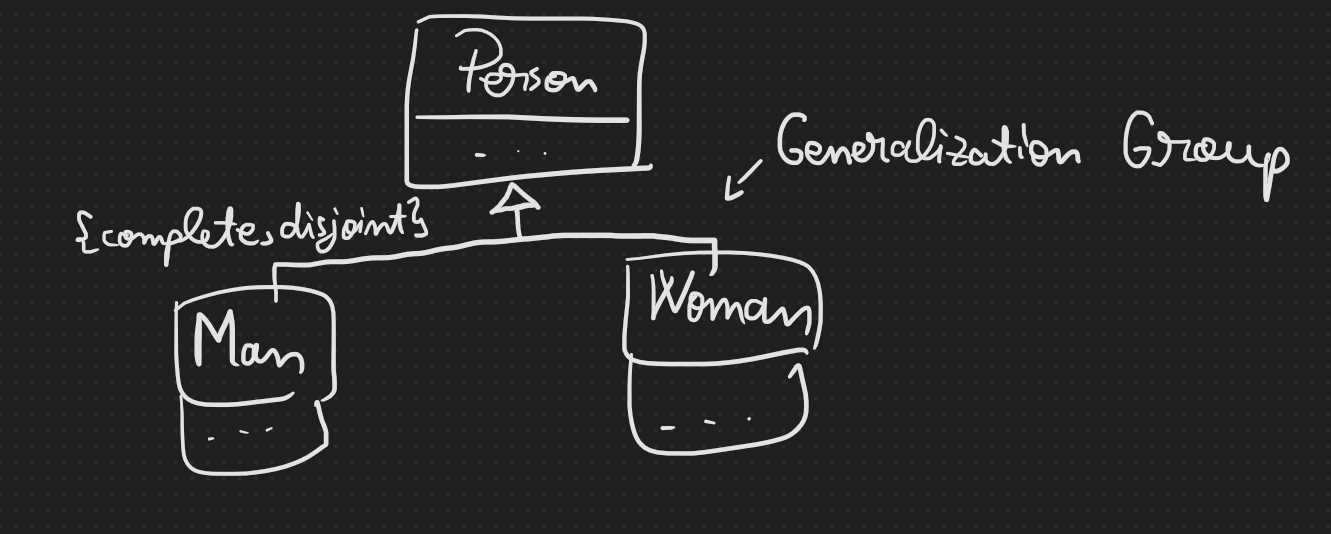 Person
- . .
Generalization Group
{complete, disjoint}
Woman
Man
- - .
- - -